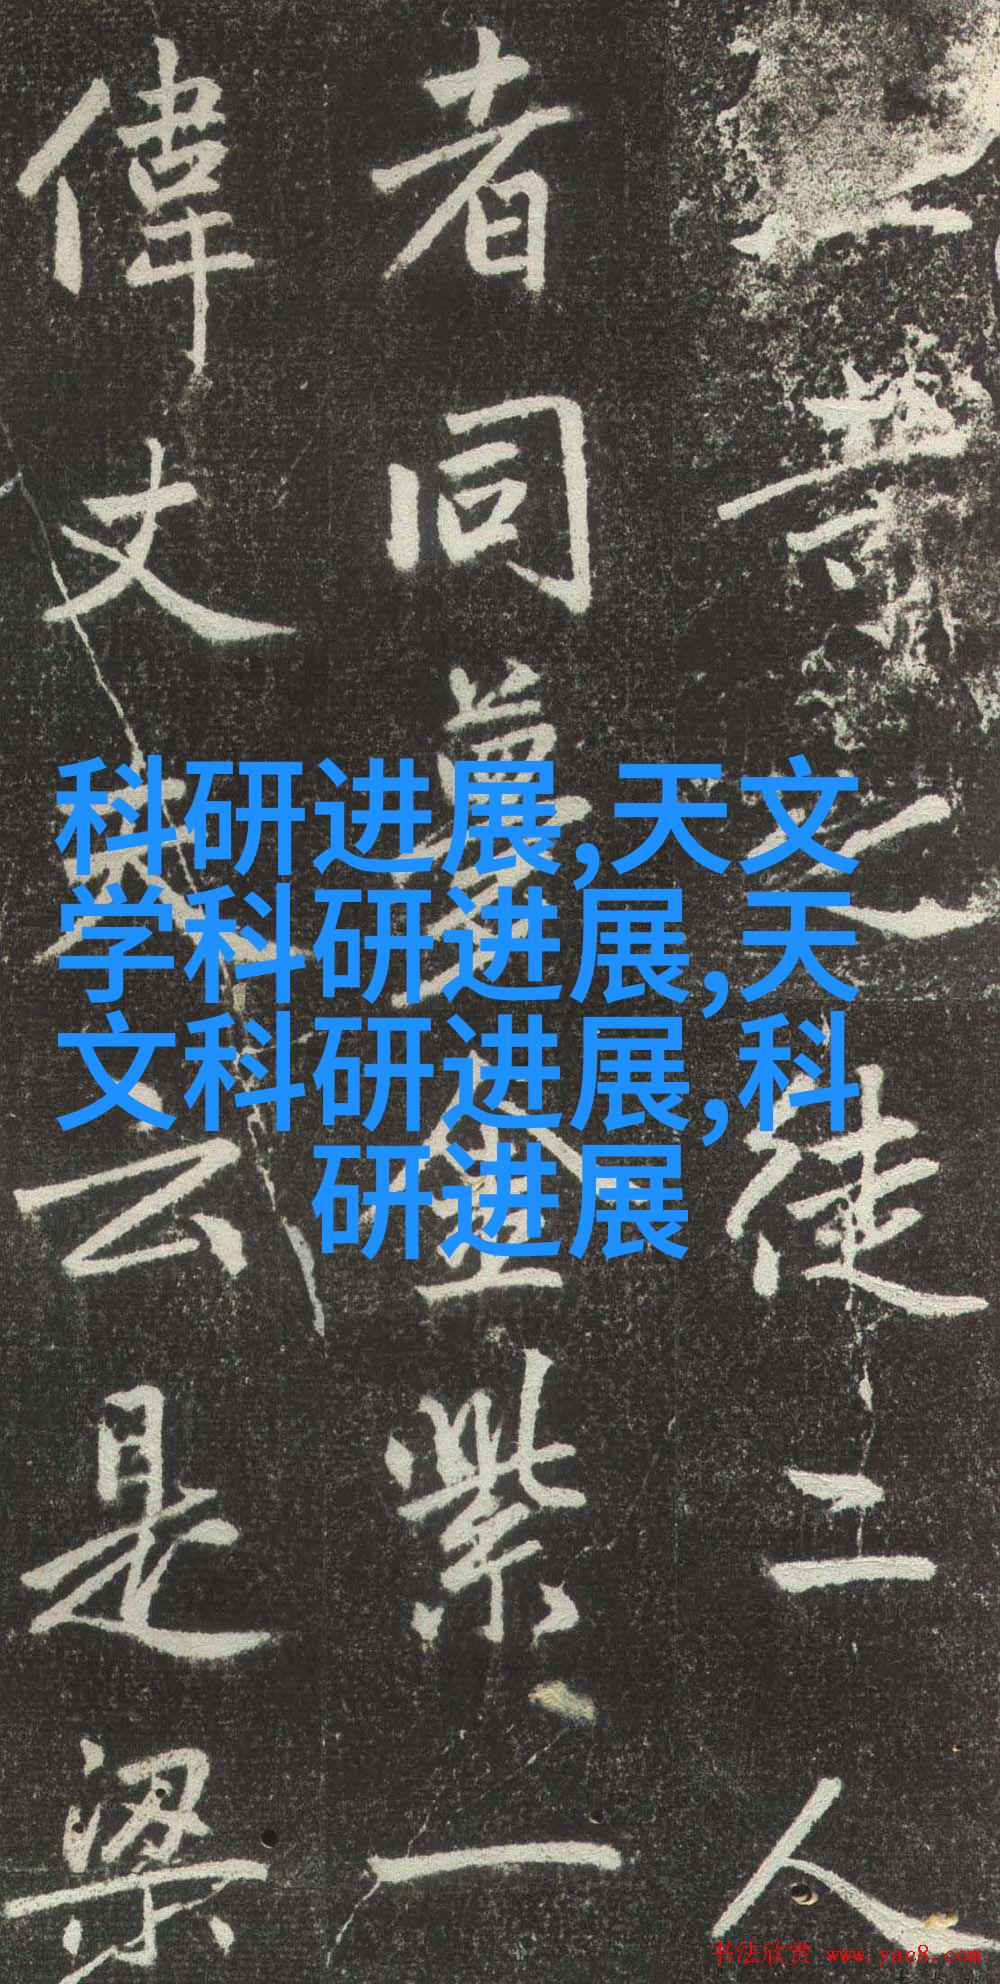 業之徒二人
者同夢紫一
偉丈夫云是梁
科研进展,天文
学科研进展,天
文科研进展,科
研进展
书法欣赏 www.yac8.com